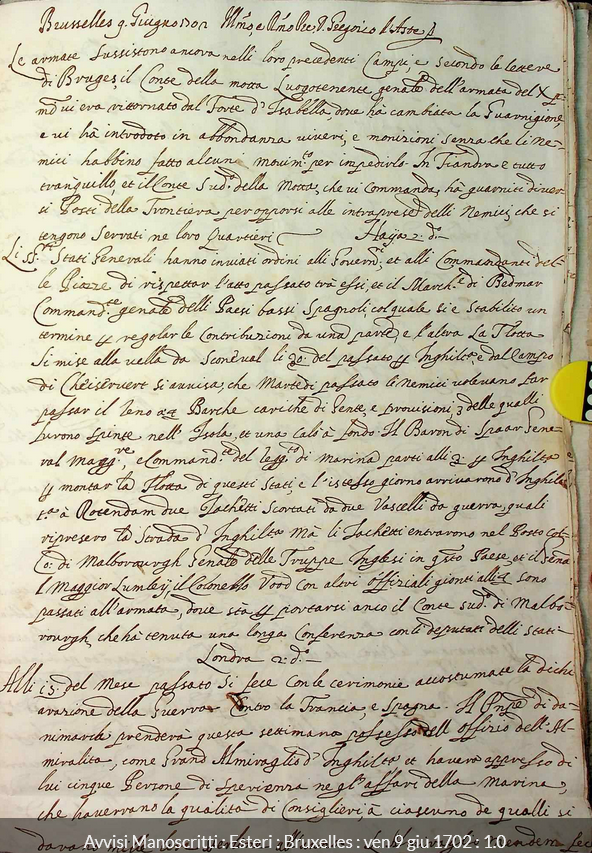 Brusselles 9. Giugno 1702
Le armate sussistono ancora nelli loro precedenti Campi, e secondo le lettere
di Bruges, il Conte della motta Luogotenente genãle dell'armata del
vi era ritornato dal Forte d'Isabella, dove hà cambiata la Guarnigione,
e vi hà introdoto in abbondanza viveri, e monizioni senza che li Ne-
mici habbino fatto alcun movim.to per inpedirlo. In Fiandra e tutto
tranquillo, et il Conte Sud.o della Motta, che vi Commanda, hà guarniti diver
si Posti della Frontiera per opporsi alle intraprese delli Nemici, che si
tengono serrati ne loro Quartieri Haija 2. d.o
Li SS.ri Stati Generali hanno inviati ordini alli Govern.ri et alli Commandanti del-
le Piazze di rispettar l'atto passato trà essi, et il March.e di Bedmar
Command.te genãle delli Paesi bassi Spagnoli, col quale si è stabilito un
termine p regolar le Contribuzioni da una parte, e l'altra La Flotta
si mise alla vella da li 30. del passato p Inghilt.a, e dal Campo
di si avvisa, che Martedi passato li Nemici volevano far
passar il Barche cariche di Gente, e provisioni, 3 delle quali
furono spinte nell'Isola, et una calò à fondo. Il Baron di Spaar Gene
ral Magg.re, e Command.te del di marina parti alli p Inghilt.a
p montar la Flotta di questi Stati, e l'istesso giorno arrivarono d'Inghil
t.a à Roterdam due Jachetti scortati da due Vascelli da guerra, quali
ripresero la strada d'Inghilt.a Mà li Jachetti entrovono nel Porto col
Co: di Malborourgh Genãle delle Truppe Inglesi in q.sto Paese, et il Gena
l Maggior Lumley, il Colonello Vood con altri offiziali gionti alli sono
passati all'armata, dove stà p portarsi anco il Conte sud.o di Malbo-
rourgh, che hà tenuta una longa Conferenza con li deputati delli Stati-
Londra 2. d.o
Alli 15. del Mese passato si fece con le cerimonie accostumate la dichi
arazione della Guerra Contro la Francia, e Spagna. Il Pnpe di Da-
nimarch prenderà questa settimana possesso dell offizio dell'Al-
miralità, come Grand'Almiraglio d'Inghilt.a et haverà appresso di
lui cinque Persone di sperienza ne gl'affari della Marina,
che haveranno la qualità di Consiglieri, à ciascuno de quali si
Avvisi Manoscritti : Esteri : Bruxelles : ven 9 giu 1702 : 1.0